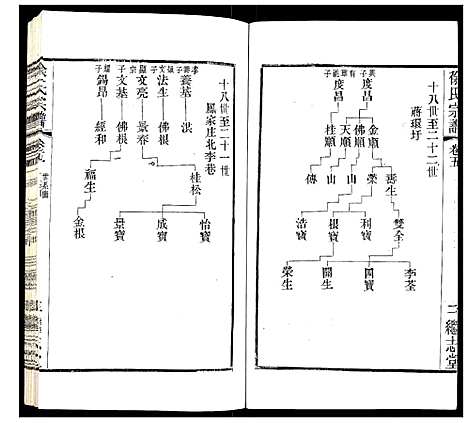 徐氏宗譜
卷五
繼志堂
十八世至二十二世
蔣環圩
度昌
度昌
金順
佛順
天順
桂順
壽生
榮
山
山
傳
雙全
利寶
根寶
浩寶
李荃
四寶
開生
榮生
十八世至二十一世
鳳家庄北李巷
養基
法生
文亮
文基
錫昌
洪
佛根
景春
佛根
經和
桂松
福生
怡寶
成寶
景寶
金根